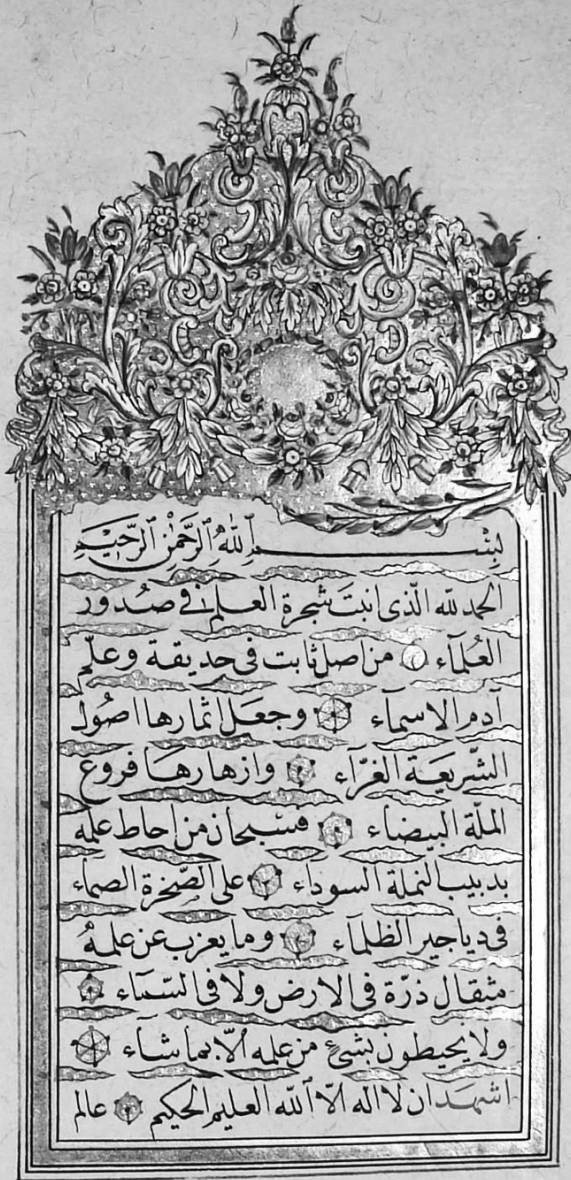 بِسْمِ اللهِ الرَّحْمٰنِ الرَّحِيمِ
الحمد لله الّذى انبت شجرة العلم فى صدور
العُلمآء من اصل ثابت فى حديقة وعلّم
آدم الاسمآء وجعل اثمارها اصُول
الشّريعَة الغرّآء وازهارها فروع
الملّة البيضاء فسبحان من احاط علمه
بدبيب النملة السوداء على الصّخرة الصماء
فى دياجير الظلمآء وما يعزب عن علمهُ
مثقال ذرّة فى الارض ولا فى السّمآء
ولا يحيطون بشىءٍ من علمه الّا بما شآء
اشهد ان لا اله الّا آلله العليم الحكيم عالم